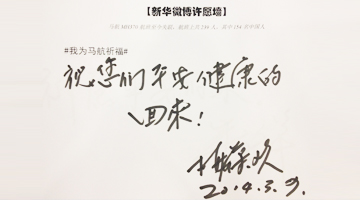 【新华微博许愿墙】
#我为马航祈福#
祝您们平安健康的
回来！
2014.3.9.